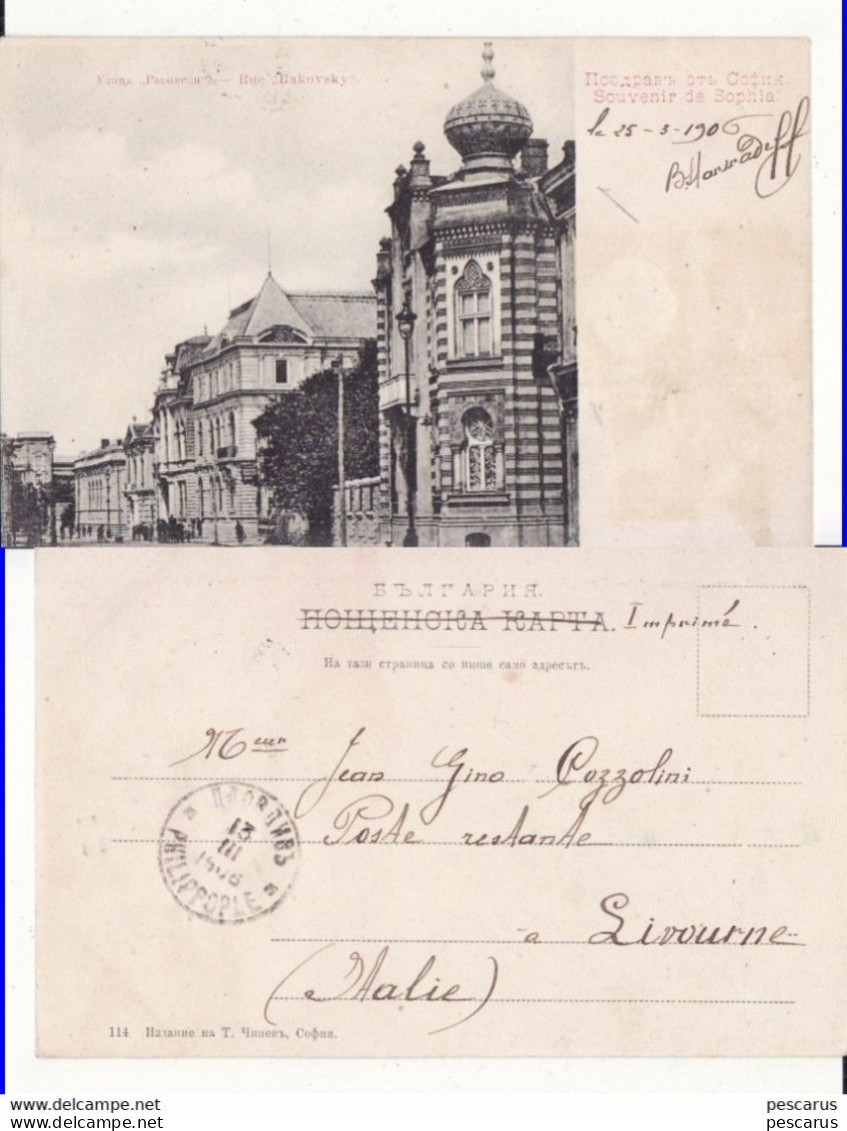 Улица „Раковски“ — Rue „Rakovsky“.
Поздравъ отъ София.
Souvenir de Sophia.
le 25-3-1906
БЪЛГАРИЯ.
ПОЩЕНСКА КАРТА. Imprimé.
На тази страница се пише само адресътъ.
Jean Gino Cozzolini
Poste restante
a Livourne
(Italie)
ПЛОВДИВЪ
13
III
1906
PHILIPPOPLE
114 Издание на Т. Чипевъ, София.
pescarus
pescarus
pescarus
pescarus